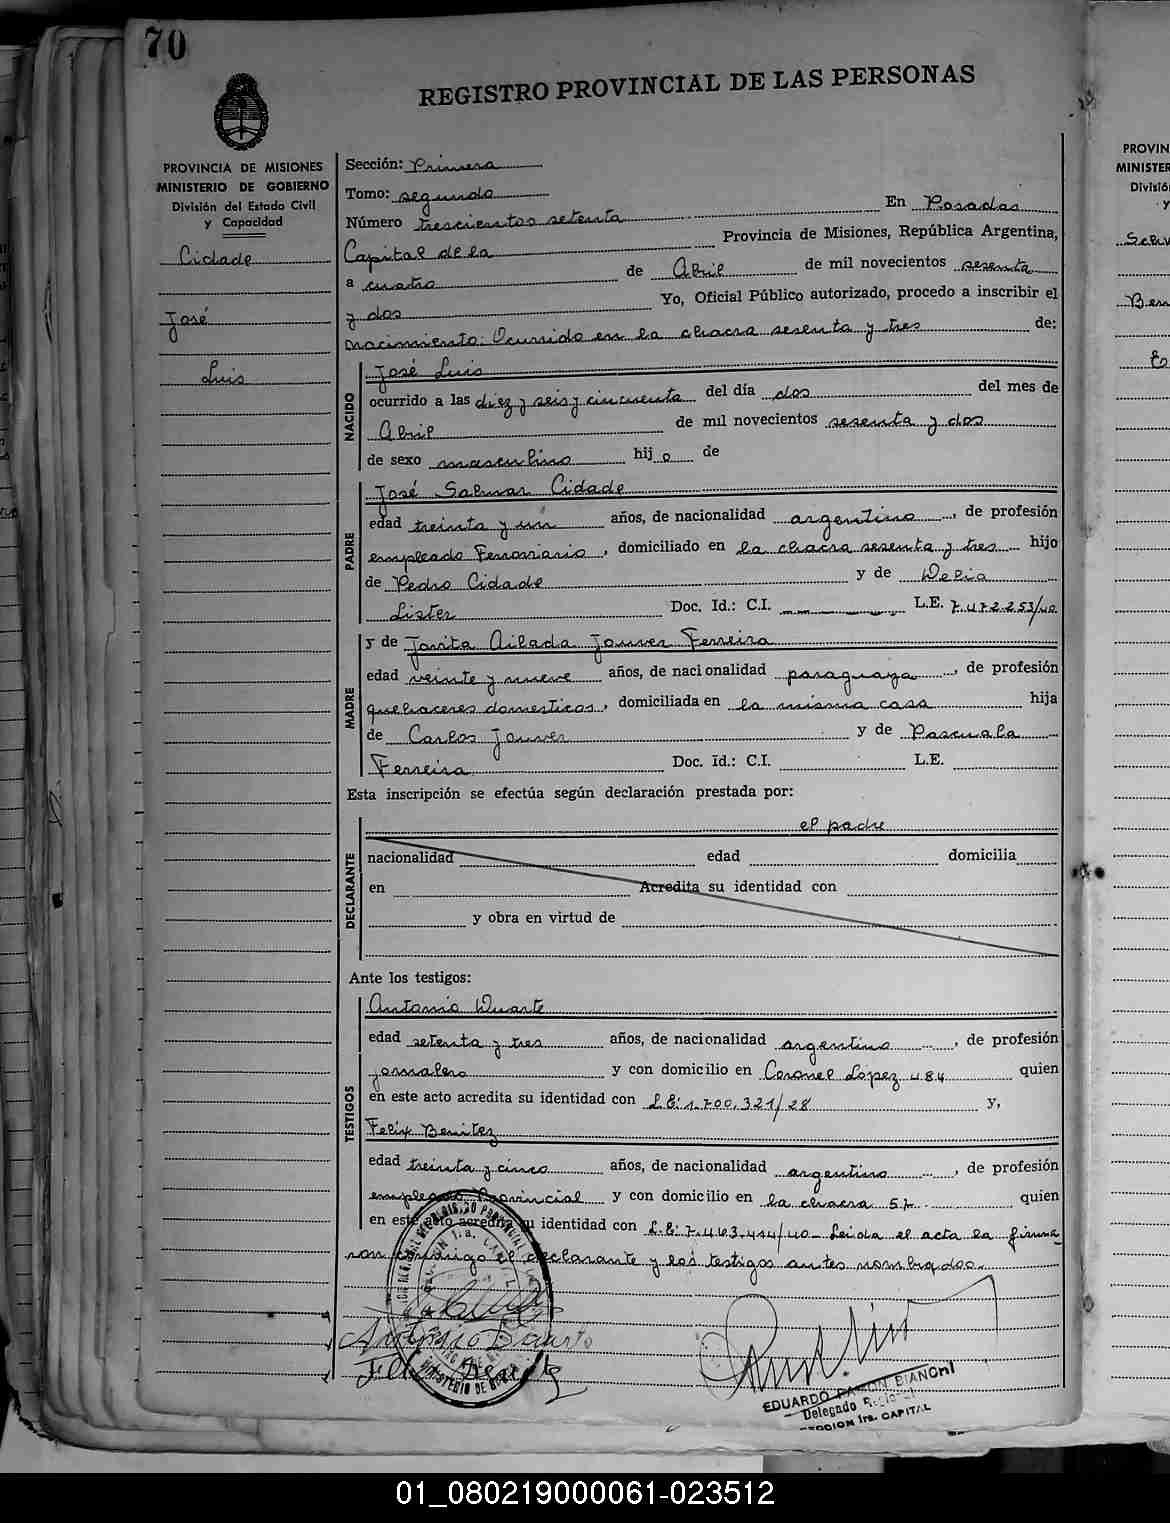 70
REGISTRO PROVINCIAL DE LAS PERSONAS
PROVINCIA DE MISIONES
MINISTERIO DE GOBIERNO
División del Estado Civil
y Capacidad
Cidade
José
Luis
Sección: Primera
Tomo: segundo
Número trescientos setenta En Posadas
Capital de la Provincia de Misiones, República Argentina,
a cuatro de Abril de mil novecientos sesenta
y dos Yo, Oficial Público autorizado, procedo a inscribir el
nacimiento: Ocurrido en la chacra sesenta y tres de:
NACIDO
José Luis
ocurrido a las diez y seis y cincuenta del día dos del mes de
Abril de mil novecientos sesenta y dos
de sexo masculino hijo de
PADRE
José Salmar Cidade
edad treinta y un años, de nacionalidad argentino, de profesión
empleado Ferroviario, domiciliado en la chacra sesenta y tres hijo
de Pedro Cidade y de Delia
Lister Doc. Id.: C.I. L.E. 7.472.253/40
MADRE
y de Jovita Ailada Jouver Ferreira
edad veinte y nueve años, de nacionalidad paraguaya, de profesión
quehaceres domesticos, domiciliada en la misma casa hija
de Carlos Jouver y de Pascuala
Ferreira Doc. Id.: C.I. L.E.
Esta inscripción se efectúa según declaración prestada por:
DECLARANTE
el padre
nacionalidad edad domicilia
en Acredita su identidad con
y obra en virtud de
Ante los testigos:
TESTIGOS
Antonio Duarte
edad setenta y tres años, de nacionalidad argentino, de profesión
jornalero y con domicilio en Coronel Lopez 484 quien
en este acto acredita su identidad con L.E: 1.700.321/28 y,
Felix Benitez
edad treinta y cinco años, de nacionalidad argentino, de profesión
empleado Provincial y con domicilio en la chacra 57 quien
en este acto acredita su identidad con L.E: 7.463.414/40- Leida el acta la firma
ron conmigo el declarante y los testigos antes nombrados.
Antonio Duarte
EDUARDO RAMON BIANCHI
Delegado Regional
SECCION 1ra. CAPITAL
PROVIN
MINISTER
01_080219000061-023512